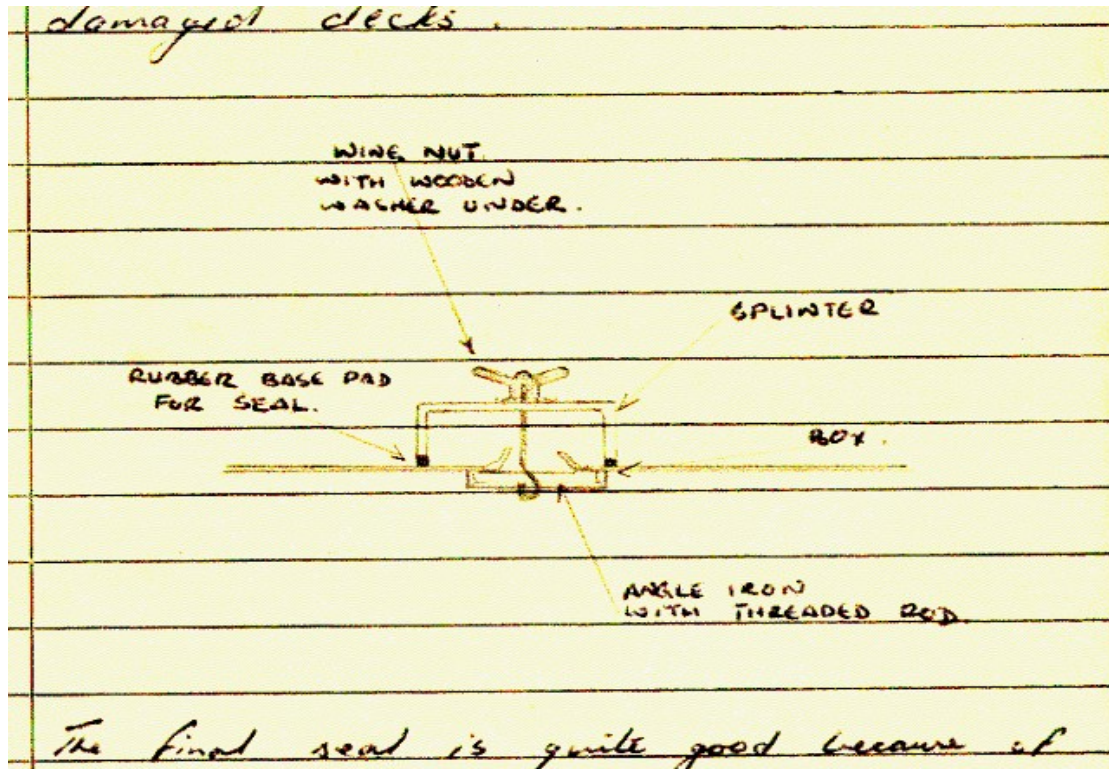 damaged decks.
WING NUT
WITH WOODEN
WASHER UNDER.
SPLINTER
RUBBER BASE PAD
FOR SEAL.
BOX.
ANGLE IRON
WITH THREADED ROD.
The final seal is quite good because of